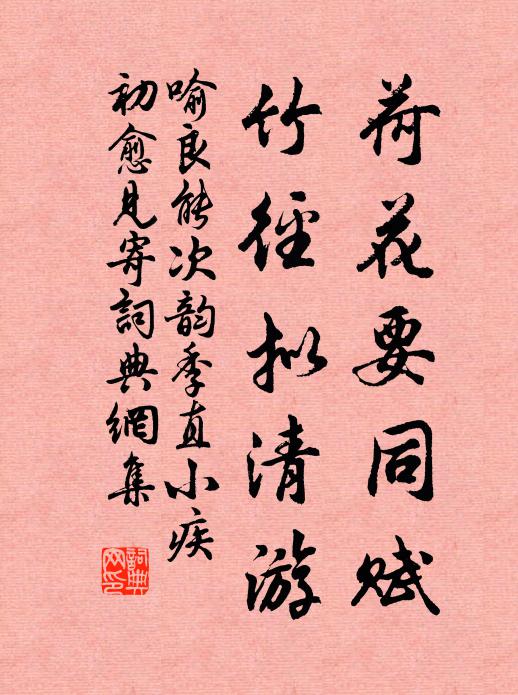 荷花要同赋
竹径拟清游
喻良能次韵季直小疾
初愈见寄詞典網集
詞典
网印